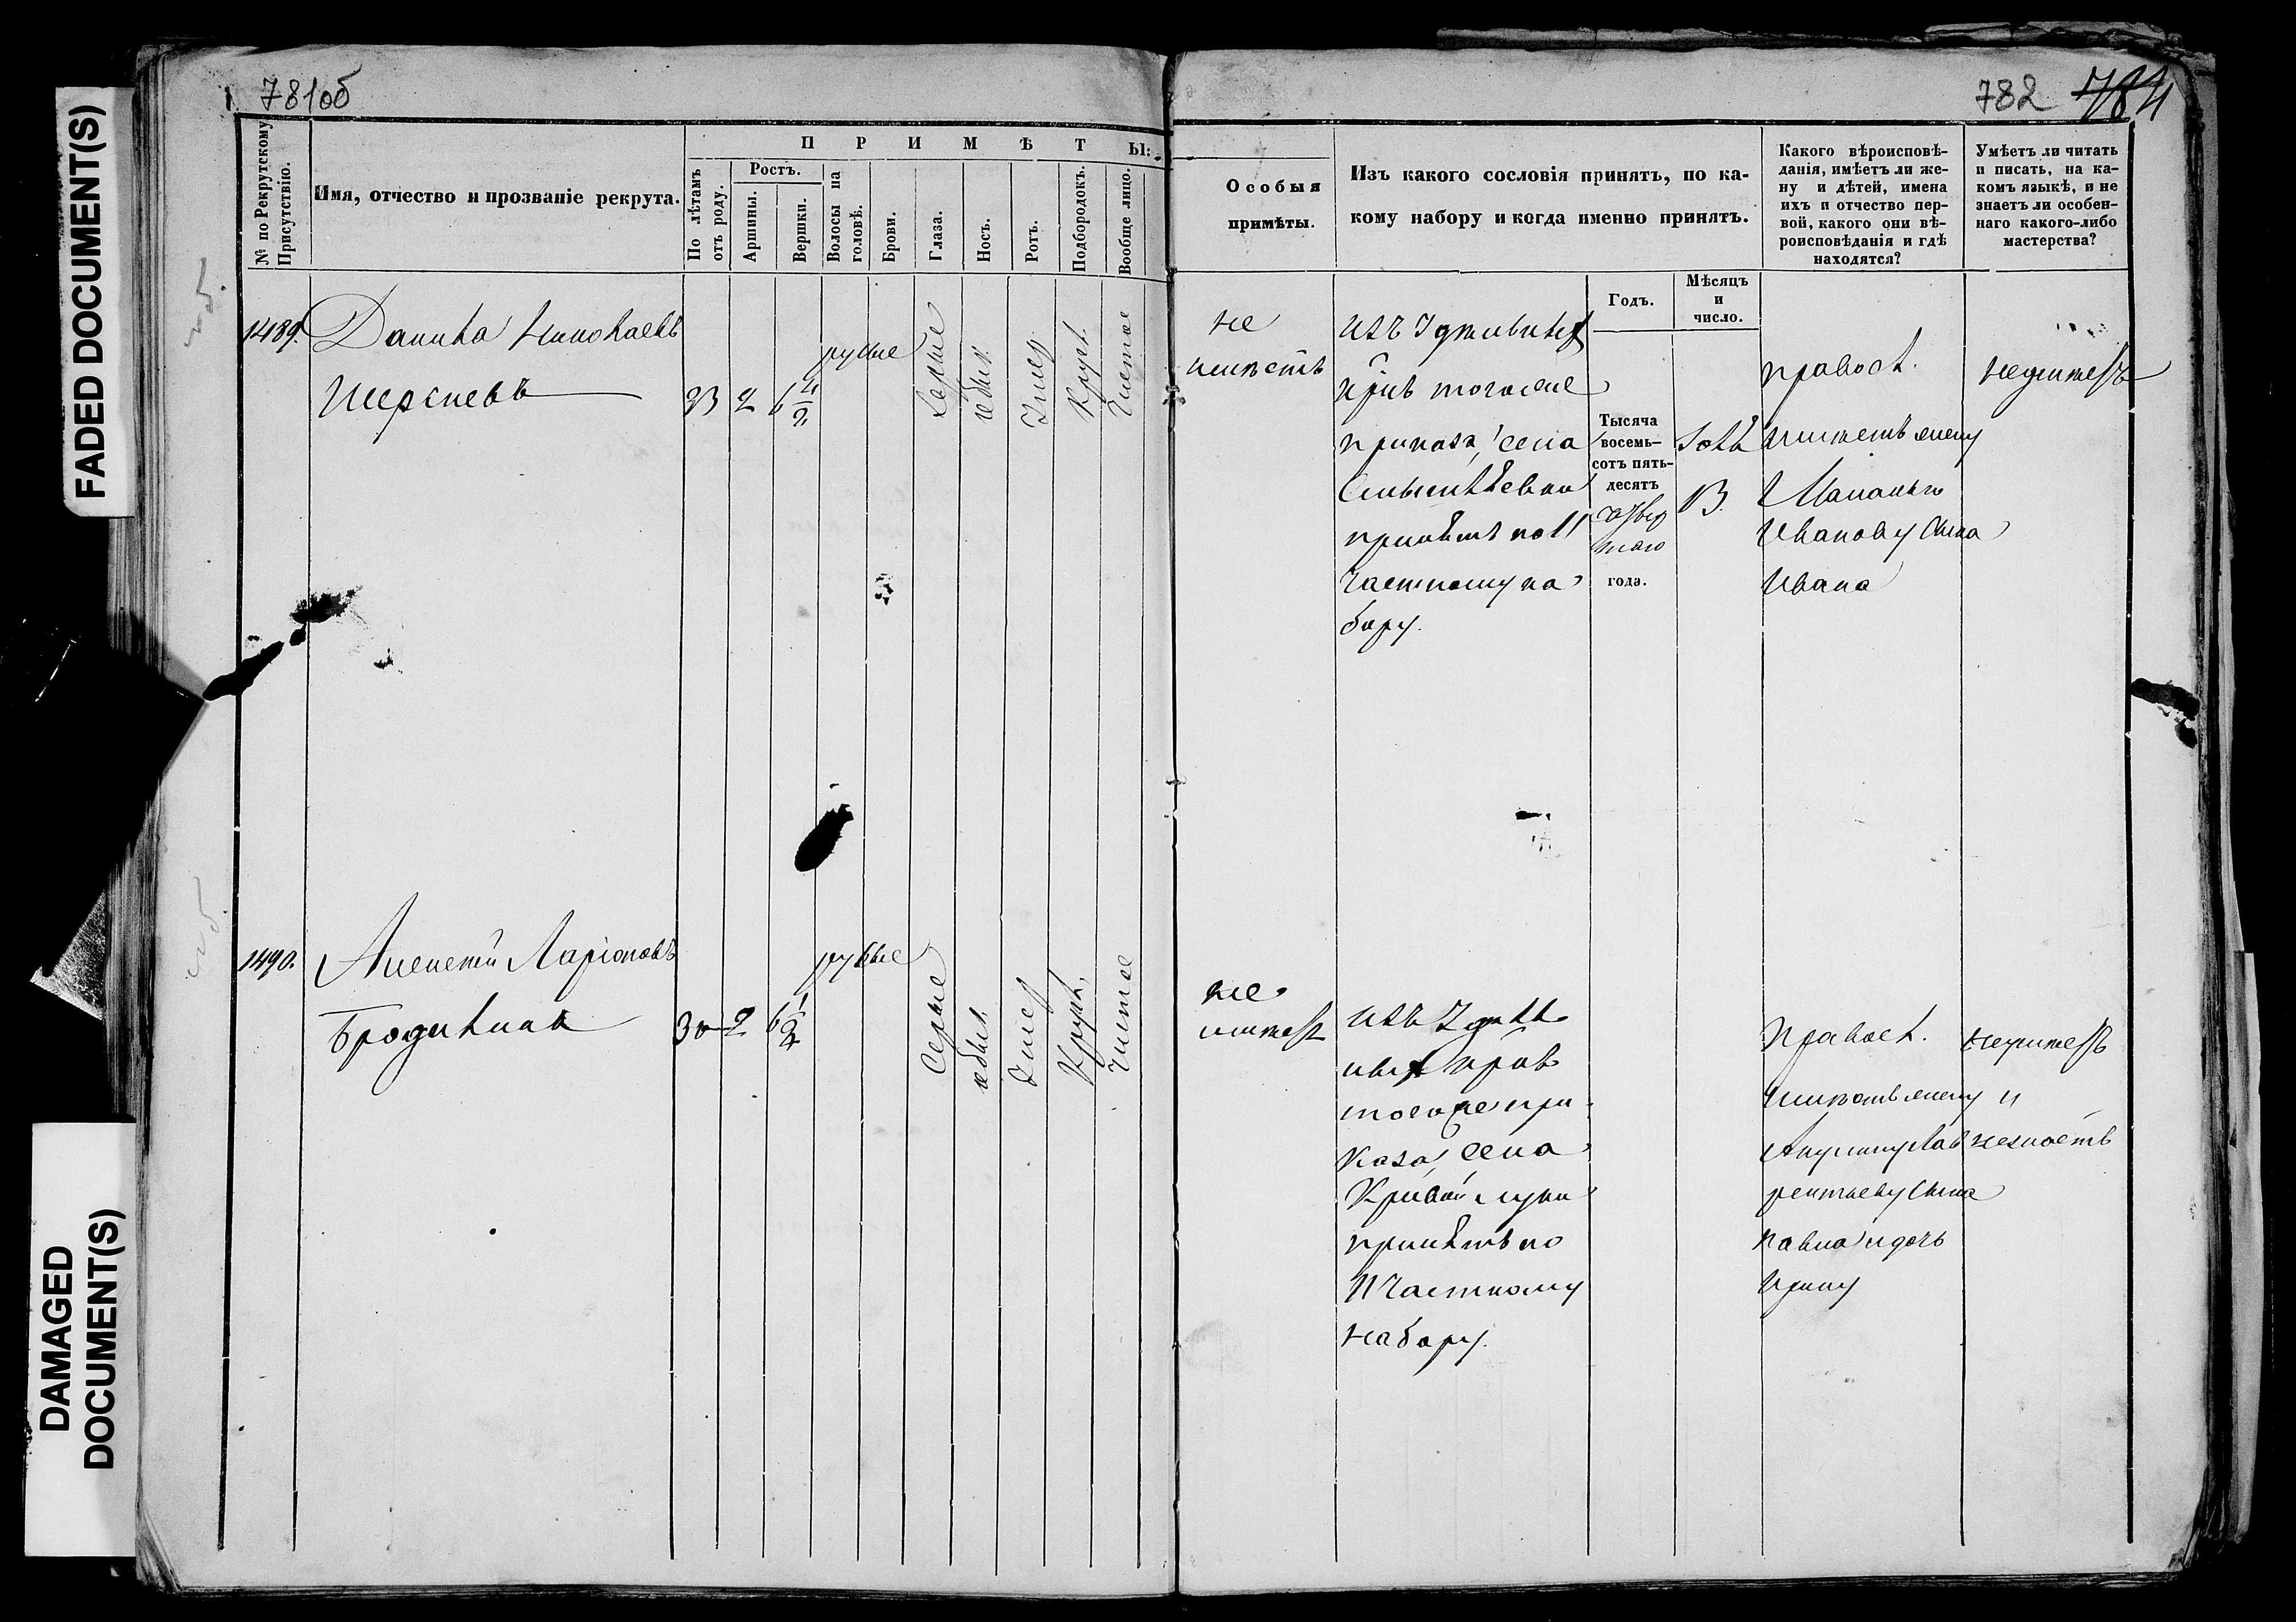 FADED DOCUMENT(S)
DAMAGED
DOCUMENT(S)
781об
782 784
№ по Рекрутскому
Присутствію.
Имя, отчество и прозваніе рекрута.
П Р И М Ѣ Т Ы:
По лѣтамъ
отъ роду.
Ростъ.
Аршины.
Вершки.
Волосы на
головѣ.
Брови.
Глаза.
Носъ.
Ротъ.
Подбородокъ.
Вообще лицо.
Особыя
примѣты.
Изъ какого сословія принятъ, по ка-
кому набору и когда именно принятъ.
Годъ.
Мѣсяцъ
и
число.
Какого вѣроисповѣ-
данія, имѣетъ ли же-
ну и дѣтей, имена
ихъ и отчество пер-
вой, какого они вѣ-
роисповѣданія и гдѣ
находятся?
Умѣетъ ли читать
и писать, на ка-
комъ языкѣ, и не
знаетъ ли особен-
наго какого-либо
мастерства?
1489.
Данила Николаевъ
23 2 6
русые
Серые
Умер
Круг.
Чистое
не
имѣетъ
изъ
тогоже
приказа, села
принятъ по 11
частному на
бору.
Тысяча
восемь-
сотъ пять-
десятъ
четвер
таго
года.
13
правос.
имѣетъ жену
Иванову сына
Ивана
неумѣетъ
1490.
Алексей Ларіоновъ
30 2 6 1/2
русые
Серые
Умер
Круг.
Чистое
не
имѣетъ
изъ
тогоже при-
каза, села
Кривой луки
принятъ по
11 частному
набору.
правос.
имѣетъ жену
Акулину Лав
рентьеву сына
Павла и дочь
Ирину
неумѣетъ
и
незнаетъ